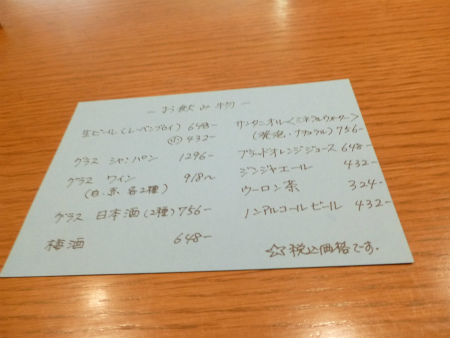 －お飲み物－
生ビール(レーベンブロイ) 648-
(小) 432-
グラス シャンパン 1296-
グラス ワイン 918～
(白・赤 各2種)
グラス 日本酒(2種) 756-
梅酒 648-
サンタニオル〈ミネラルウォーター〉
(発泡・ナチュラル) 756-
ブラッドオレンジジュース 648-
ジンジャエール 432-
ウーロン茶 324-
ノンアルコールビール 432-
☆税込価格です。